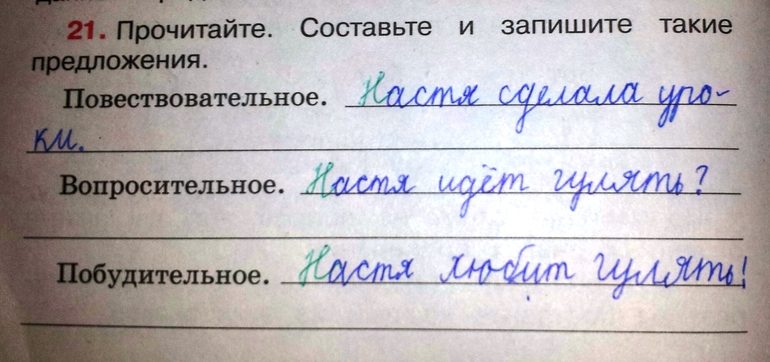 21. Прочитайте. Составьте и запишите такие
предложения.
Повествовательное. Настя сделала уро-
ки.
Вопросительное. Настя идёт гулять?
Побудительное. Настя любит гулять!